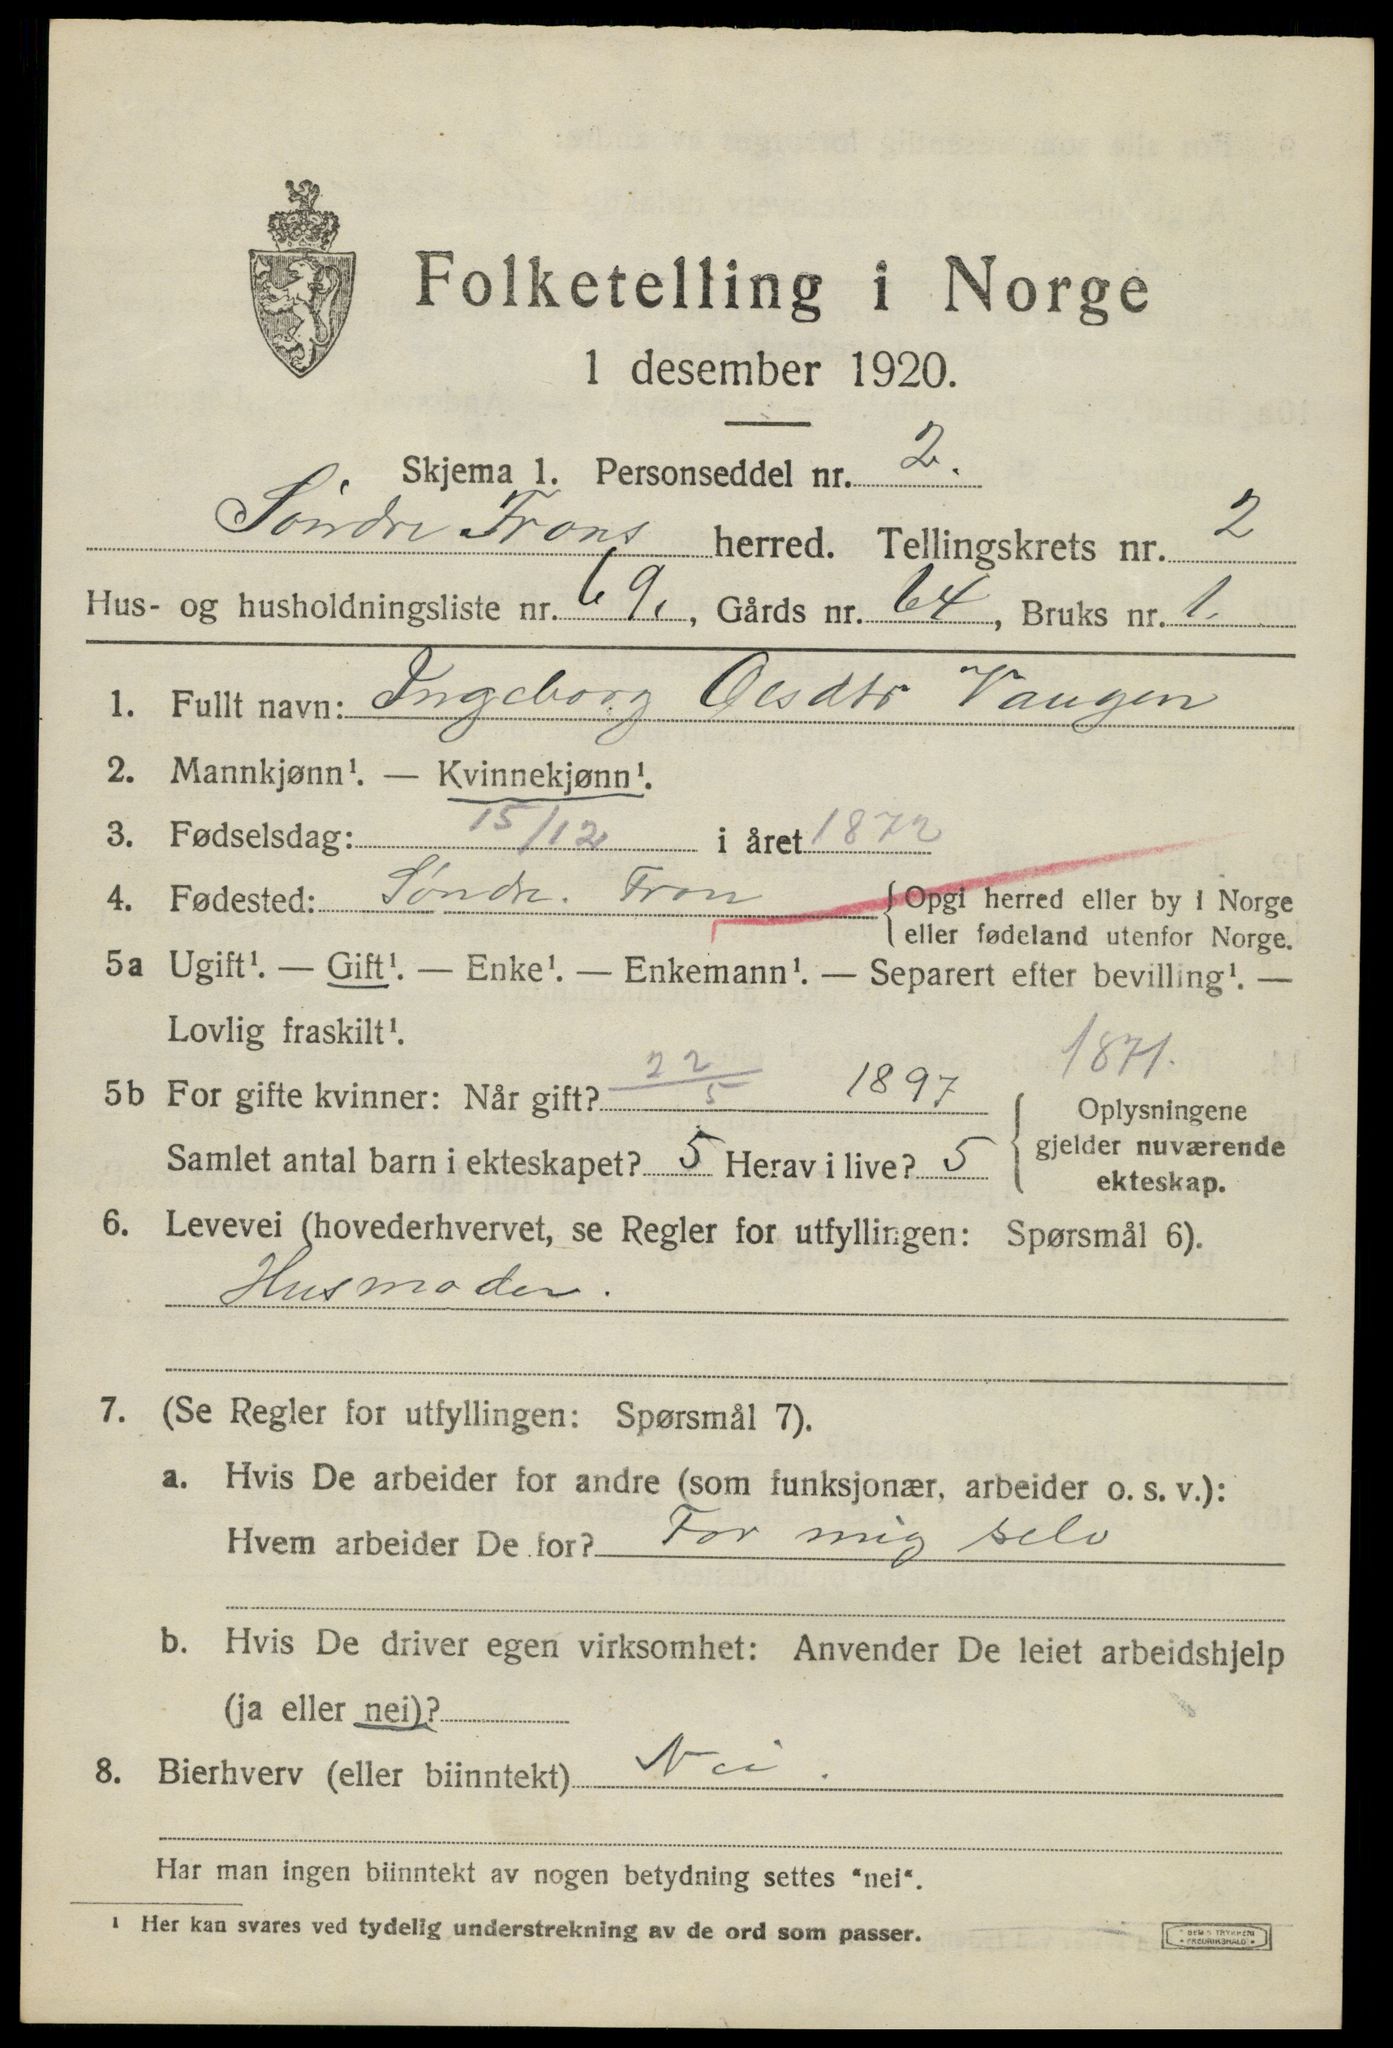 Folketelling i Norge
1 desember 1920.
Skjema 1. Personseddel nr. 2.
Søndre Frons herred. Tellingskrets nr. 2
Hus- og husholdningsliste nr. 69, Gårds nr. 64, Bruks nr. 1.
1. Fullt navn: Ingeborg Olsdtr Vangen
2. Mannkjønn¹. — Kvinnekjønn¹.
3. Fødselsdag: 15/12 i året 1872
4. Fødested: Søndre. Fron {Opgi herred eller by i Norge
eller fødeland utenfor Norge.
5a Ugift¹. — Gift¹. — Enke¹. — Enkemann¹. — Separert efter bevilling¹. —
Lovlig fraskilt¹.
1871.
5b For gifte kvinner: Når gift? 22/5 1897
Samlet antal barn i ekteskapet? 5 Herav i live? 5
Oplysningene
gjelder nuværende
ekteskap.
6. Levevei (hovederhvervet, se Regler for utfyllingen: Spørsmål 6).
Husmoder.
7. (Se Regler for utfyllingen: Spørsmål 7).
a. Hvis De arbeider for andre (som funksjonær, arbeider o. s. v.):
Hvem arbeider De for? For mig selv
b. Hvis De driver egen virksomhet: Anvender De leiet arbeidshjelp
(ja eller nei)?
8. Bierhverv (eller biinntekt) Nei.
Har man ingen biinntekt av nogen betydning settes "nei".
¹ Her kan svares ved tydelig understrekning av de ord som passer.